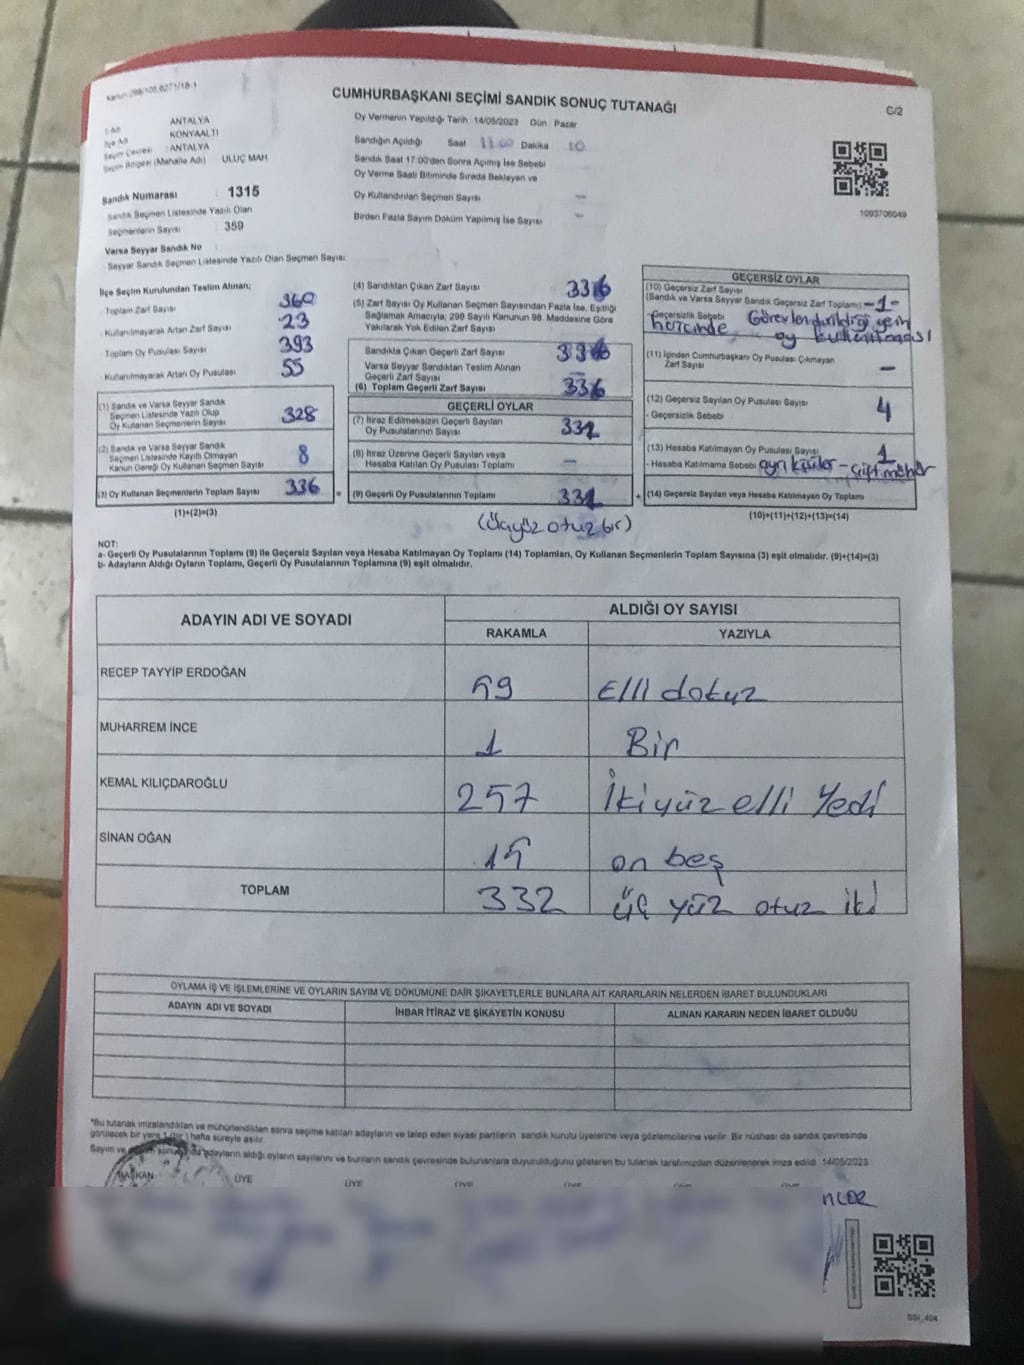 Kanun:298/105,6271/18-1
CUMHURBAŞKANI SEÇİMİ SANDIK SONUÇ TUTANAĞI
C/2
İl Adı : ANTALYA
İlçe Adı : KONYAALTI
Seçim Çevresi : ANTALYA
Seçim Bölgesi (Mahalle Adı) : ULUÇ MAH.
Sandık Numarası : 1315
Sandık Seçmen Listesinde Yazılı Olan
Seçmenlerin Sayısı : 359
Varsa Seyyar Sandık No
Seyyar Sandık Seçmen Listesinde Yazılı Olan Seçmen Sayısı:
Oy Vermenin Yapıldığı Tarih 14/05/2023 Gün Pazar
Sandığın Açıldığı Saat Dakika 10
Sandık Saat 17:00'den Sonra Açımış İse Sebebi
Oy Verme Saati Bitiminde Sırada Bekleyen ve
Oy Kullandırılan Seçmen Sayısı —
Birden Fazla Sayım Döküm Yapılmış İse Sayısı -
1093706049
İlçe Seçim Kurulundan Teslim Alınan;
- Toplam Zarf Sayısı 360
- Kullanılmayarak Artan Zarf Sayısı 23
- Toplam Oy Pusulası Sayısı 393
- Kullanılmayarak Artan Oy Pusulası 55
(1) Sandık ve Varsa Seyyar Sandık
Seçmen Listesinde Yazılı Olup
Oy Kullanan Seçmenlerin Sayısı 328
(2) Sandık ve Varsa Seyyar Sandık
Seçmen Listesinde Kayıtlı Olmayan
Kanun Gereği Oy Kullanan Seçmen Sayısı 8
(3) Oy Kullanan Seçmenlerin Toplam Sayısı 336 =
(1)+(2)=(3)
(4) Sandıktan Çıkan Zarf Sayısı 336
(5) Zarf Sayısı Oy Kullanan Seçmen Sayısından Fazla İse, Eşitliği
Sağlamak Amacıyla, 298 Sayılı Kanunun 98. Maddesine Göre
Yakılarak Yok Edilen Zarf Sayısı
Sandıkta Çıkan Geçerli Zarf Sayısı 336
Varsa Seyyar Sandıktan Teslim Alınan
Geçerli Zarf Sayısı
(6) Toplam Geçerli Zarf Sayısı 336
GEÇERLİ OYLAR
(7) İtiraz Edilmeksizin Geçerli Sayılan
Oy Pusulalarının Sayısı 331
(8) İtiraz Üzerine Geçerli Sayılan veya
Hesaba Katılan Oy Pusulası Toplamı —
(9) Geçerli Oy Pusulalarının Toplamı 331 +
(Üçyüz otuz bir)
GEÇERSİZ OYLAR
(10) Geçersiz Zarf Sayısı
(Sandık ve Varsa Seyyar Sandık Geçersiz Zarf Toplamı) -1-
-Geçersizlik Sebebi Görevlendirildiği yerin
haricinde oy kullanması
(11) İçinden Cumhurbaşkanı Oy Pusulası Çıkmayan
Zarf Sayısı —
(12) Geçersiz Sayılan Oy Pusulası Sayısı 4
- Geçersizlik Sebebi
(13) Hesaba Katılmayan Oy Pusulası Sayısı 1
- Hesaba Katılmama Sebebi ayrı kişiler - Çift mühür
(14) Geçersiz Sayılan veya Hesaba Katılmayan Oy Toplamı
(10)+(11)+(12)+(13)=(14)
NOT:
a- Geçerli Oy Pusulalarının Toplamı (9) ile Geçersiz Sayılan veya Hesaba Katılmayan Oy Toplamı (14) Toplamları, Oy Kullanan Seçmenlerin Toplam Sayısına (3) eşit olmalıdır. (9)+(14)=(3)
b- Adayların Aldığı Oyların Toplamı, Geçerli Oy Pusulalarının Toplamına (9) eşit olmalıdır.
ADAYIN ADI VE SOYADI
ALDIĞI OY SAYISI
RAKAMLA YAZIYLA
RECEP TAYYİP ERDOĞAN 59 Elli dokuz
MUHARREM İNCE 1 Bir
KEMAL KILIÇDAROĞLU 257 İkiyüz elli Yedi
SİNAN OĞAN 15 on beş
TOPLAM 332 Üç yüz otuz iki
OYLAMA İŞ VE İŞLEMLERİNE VE OYLARIN SAYIM VE DÖKÜMÜNE DAİR ŞİKAYETLERLE BUNLARA AİT KARARLARIN NELERDEN İBARET BULUNDUKLARI
ADAYIN ADI VE SOYADI İHBAR İTİRAZ VE ŞİKAYETİN KONUSU ALINAN KARARIN NEDEN İBARET OLDUĞU
*Bu tutanak imzalandıktan ve mühürlendikten sonra seçime katılan adayların ve talep eden siyasi partilerin sandık kurulu üyelerine veya gözlemcilerine verilir. Bir nüshası da sandık çevresinde
görülecek bir yere 1 (bir) hafta süreyle asılır.
Sayım ve adayların aldığı oyların sayılarını ve bunların sandık çevresinde bulunanlara duyurulduğunu gösteren bu tutanak tarafımızdan düzenlenerek imza edildi. 14/05/2023
BAŞKAN ÜYE ÜYE ÜYE ÜYE